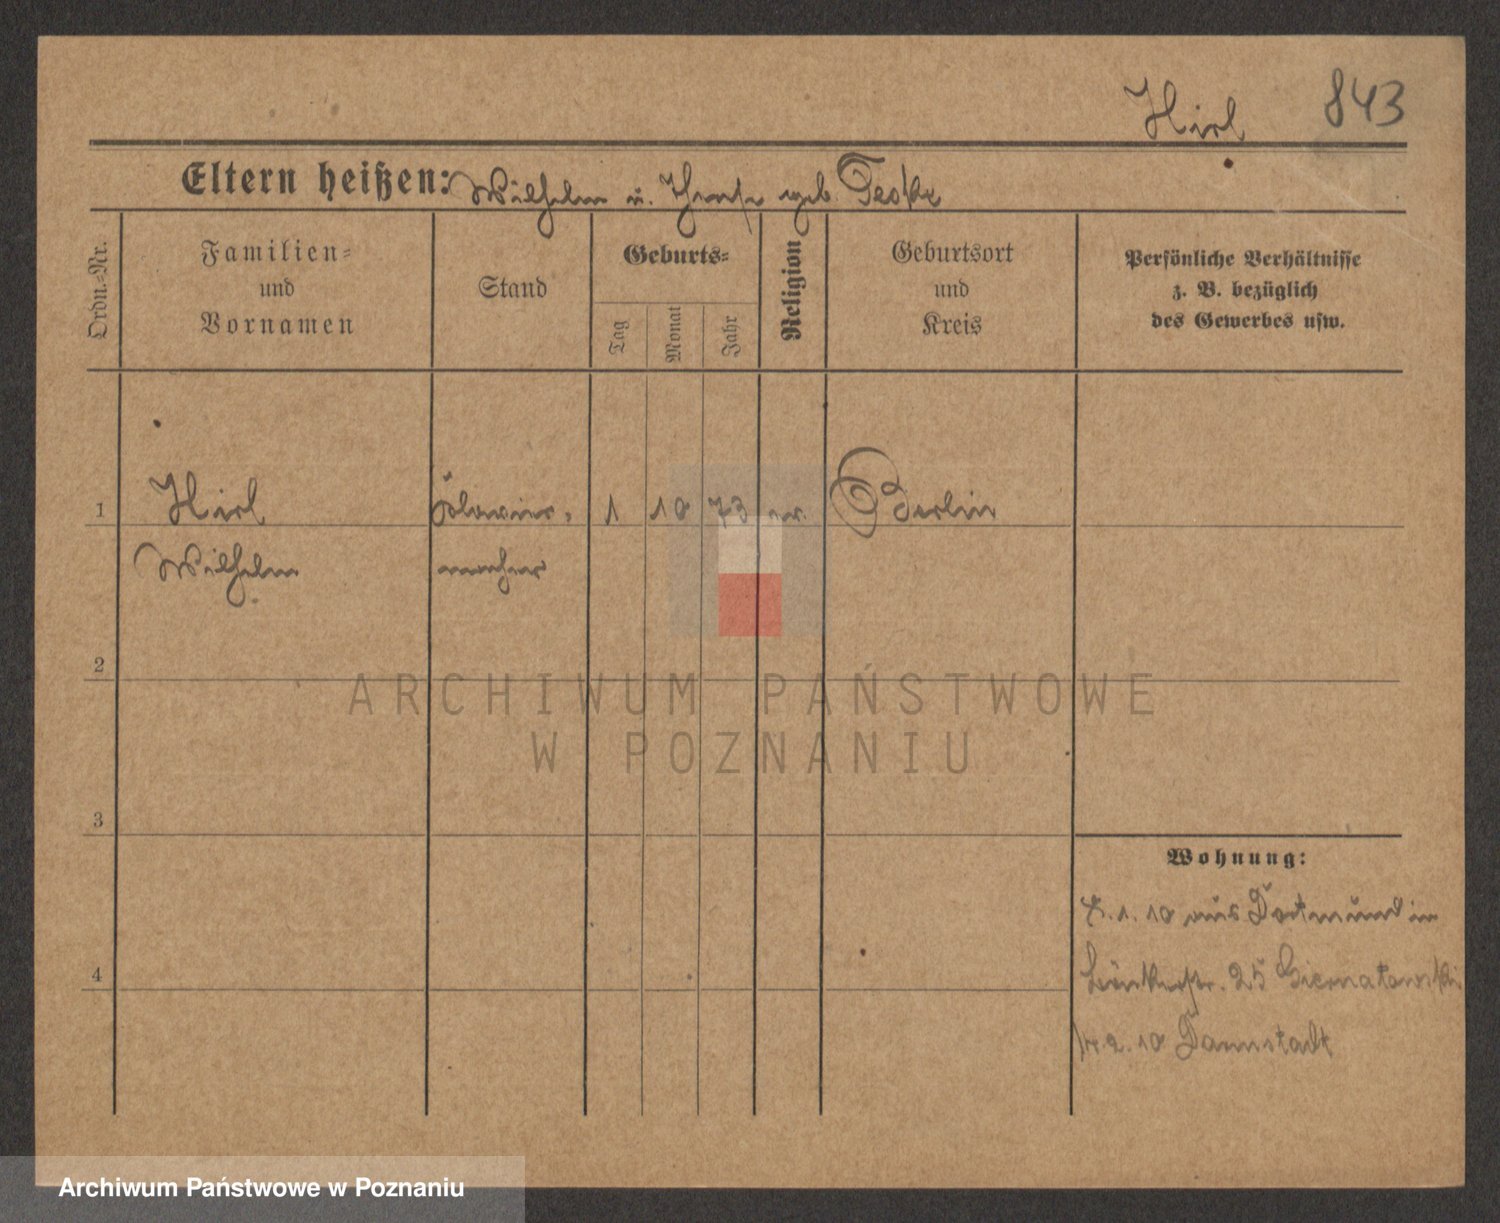 Hirl 843
Eltern heißen: Wilhelm u. geb. Teske
Ordn.-Nr.
Familien-
und
Vornamen
Stand
Geburts-
Tag
Monat
Jahr
Religion
Geburtsort
und
Kreis
Persönliche Verhältnisse
z. B. bezüglich
des Gewerbes usw.
1 Hirl 1 10 73 ev. Berlin
Wilhelm macher
2
ARCHIWUM PAŃSTWOWE
W POZNANIU
3
Wohnung:
1. 10 aus Dortmund in
25
4
2. 10 Darmstadt
Archiwum Państwowe w Poznaniu